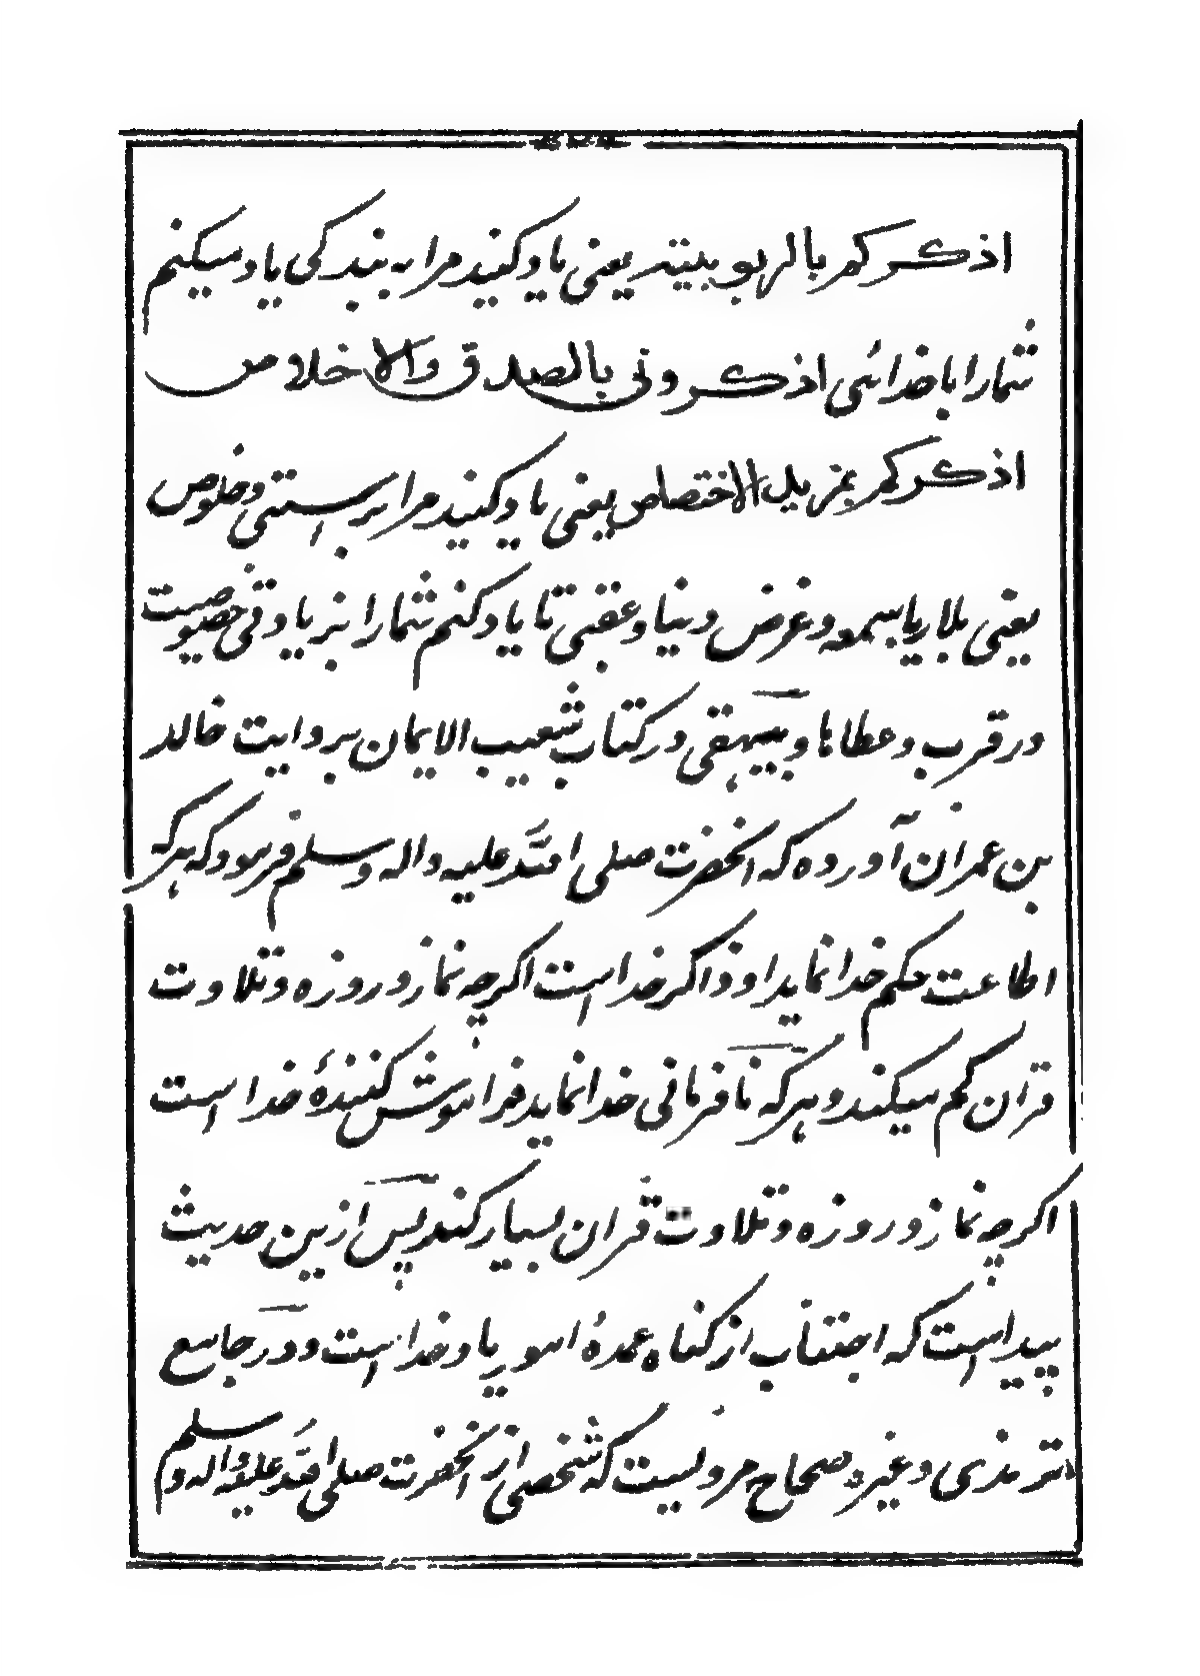 اذکرکم بالربوبیته یعنی یاد کنید مرا به بندگی یاد میکنم
شمارا با خدائی اذکرونی بالصدق والاخلاص
اذکرکم بمزید الاختصاص یعنی یاد کنید مرا براستی و خلوص
یعنی بلا ریا سمعه و غرض دنیا و عقبی تا یاد کنم شمارا بزیادتی خصوصیت
در قرب و عطاها و بیهقی در کتاب شعیب الایمان بروایت خالد
بن عمران آورده که آنحضرت صلی الله علیه واله وسلم فرمود که هرکه
اطاعت حکم خدا نماید او ذاکر خدا است اگرچه نماز و روزه و تلاوت
قران کم میکند و هرکه نافرمانی خدا نماید فراموش کنندهٔ خدا است
اگرچه نماز و روزه و تلاوت قران بسیار کند پس ازین حدیث
پیداست که اجتناب از گناه عمدهٔ امور یاد خدا است و در جامع
ترمذی و غیره صحاح مرویست که شخصی از آنحضرت صلی الله علیه واله وسلم